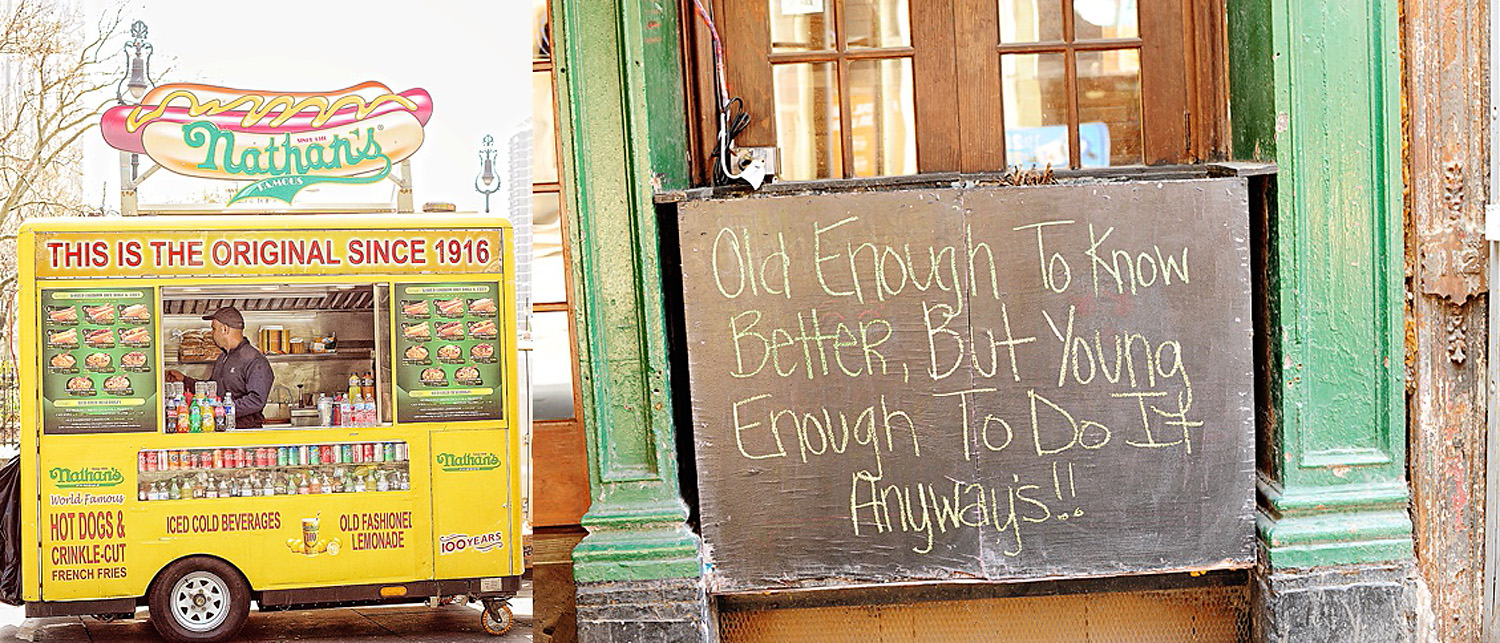 SINCE 1916
Nathan's
FAMOUS
THIS IS THE ORIGINAL SINCE 1916
Nathan's
World Famous
HOT DOGS &
CRINKLE-CUT
FRENCH FRIES
ICED COLD BEVERAGES
OLD FASHIONED
LEMONADE
Nathan's
100 YEARS
Old Enough To Know
Better, But Young
Enough To Do It
Anyways!!